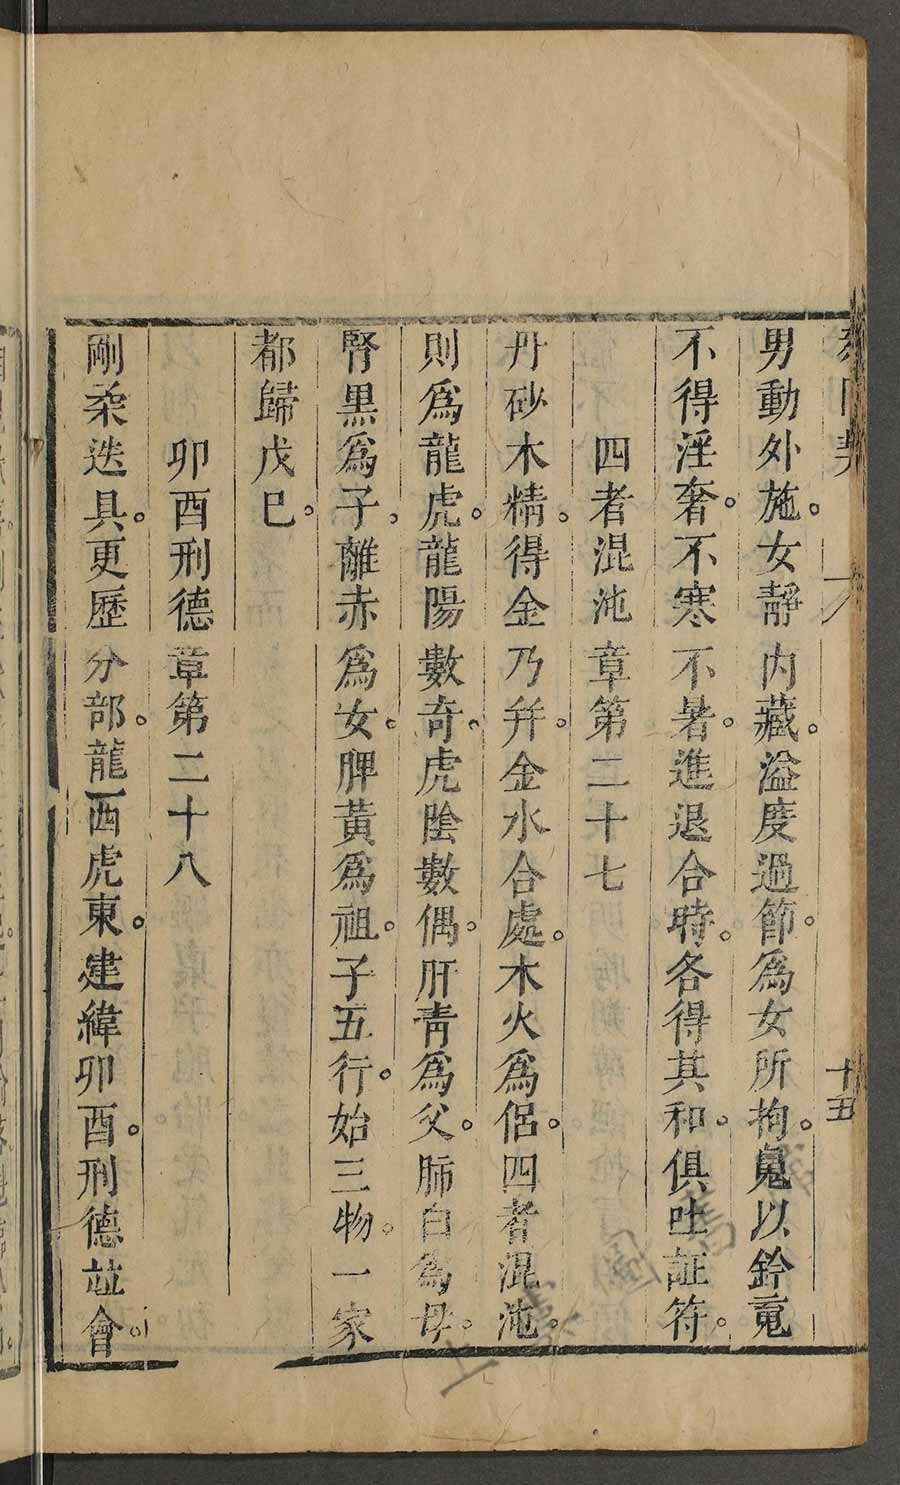 男動外施。女靜内藏。溢度過節。為女所拘。魄以鈐䰟
不得淫奢。不寒不暑。進退合時。各得其和。俱吐証符。
四者混沌章第二十七
丹砂木精。得金乃并。金水合處。木火為侶。四者混沌。
則為龍虎。龍陽數奇。虎陰數偶。肝青為父。肺白為母。
腎黒為子。離赤為女。脾黃為祖。子五行。始三物。一家
都歸戊巳。
卯酉刑德章第二十八
剛柔迭具。更歷分部。龍西虎東。建緯卯酉。刑德並會。
十五